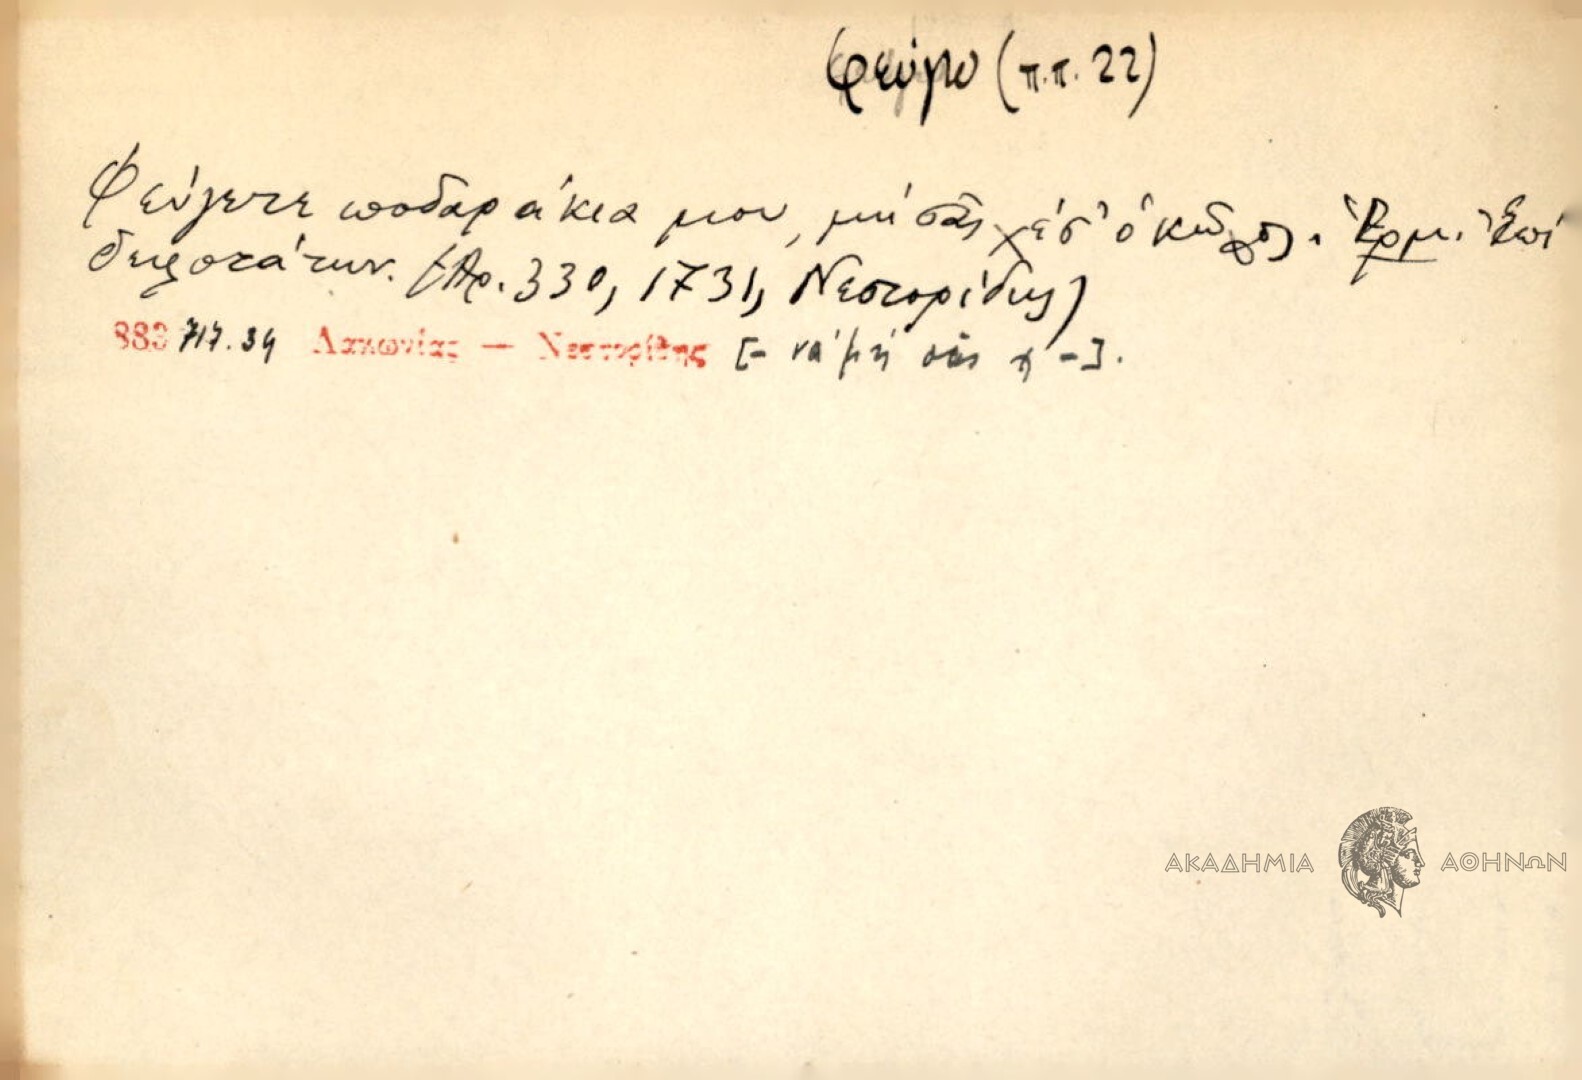 φεύγω (π.π. 22)
Φεύγετε ποδαράκια μου, μή σᾶς χέσ' ὁ κῶλος. Ἑρμ. Ἐπί
δειλοτάτων. (Ἀρ. 330, 1731, Νεστορίδης)
883 717.34 Λακωνίας — Νεστορίδης [- νά μή σᾶς χ -].
ΑΚΑΔΗΜΙΑ ΑΘΗΝΩΝ